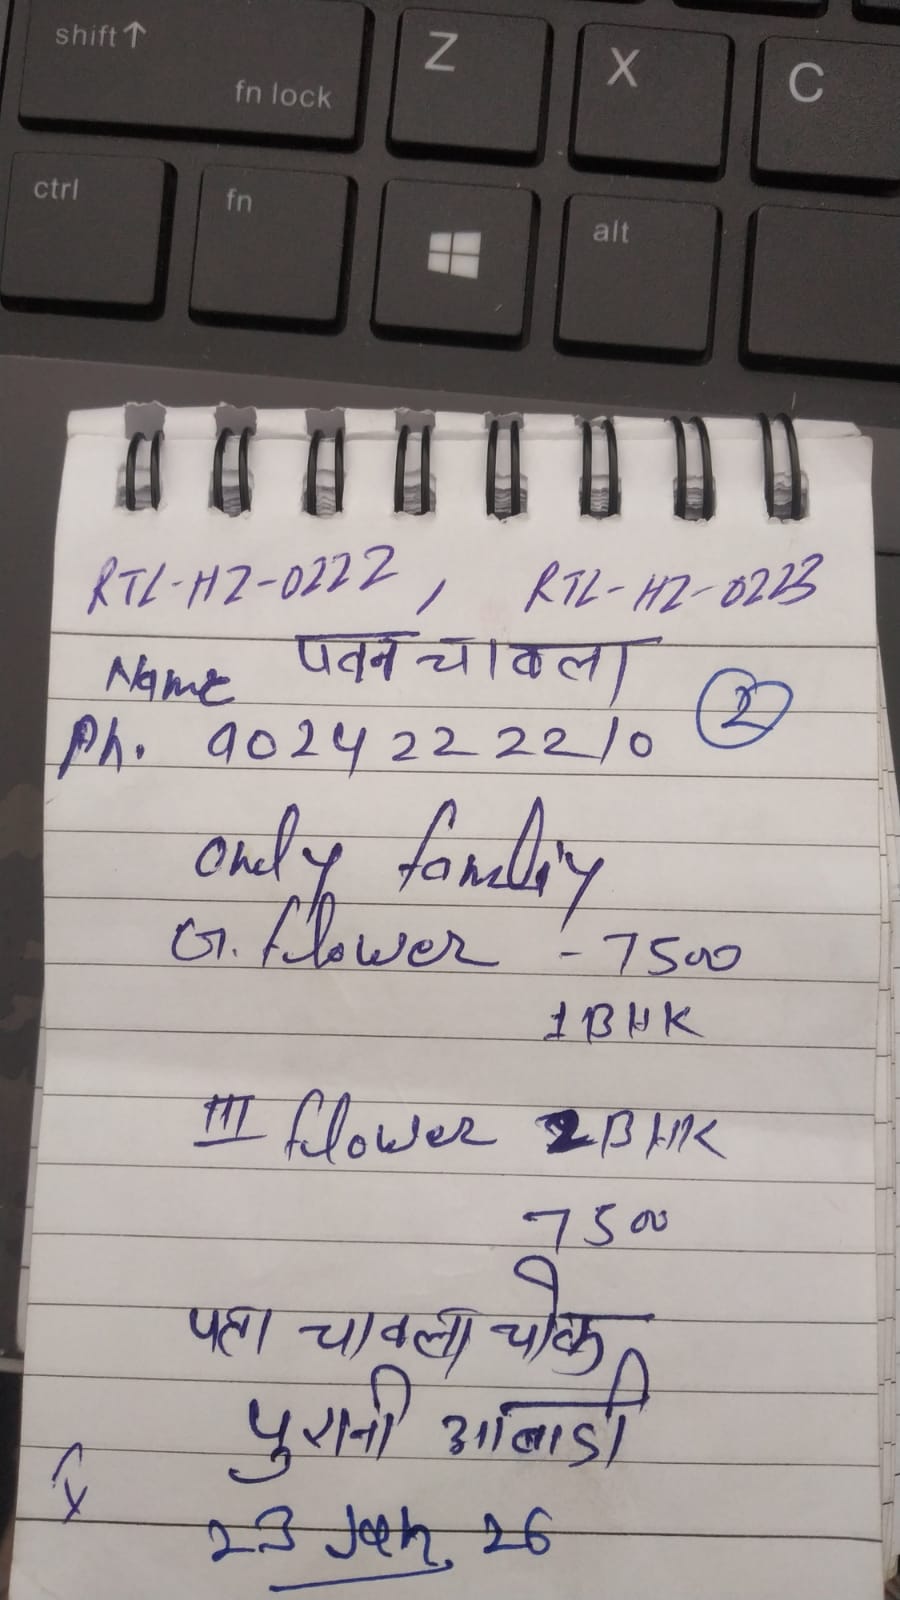 shift↑ Z X C
fn lock
ctrl fn alt
RTL-HZ-0222, RTL-HZ-0223
Name पवन चावला
②
Ph. 9024222210
only family
G. flower - 7500
1BHK
III flower 2BHK
7500
पता चावला चौक
पुरानी आबादी
23 Jan 26